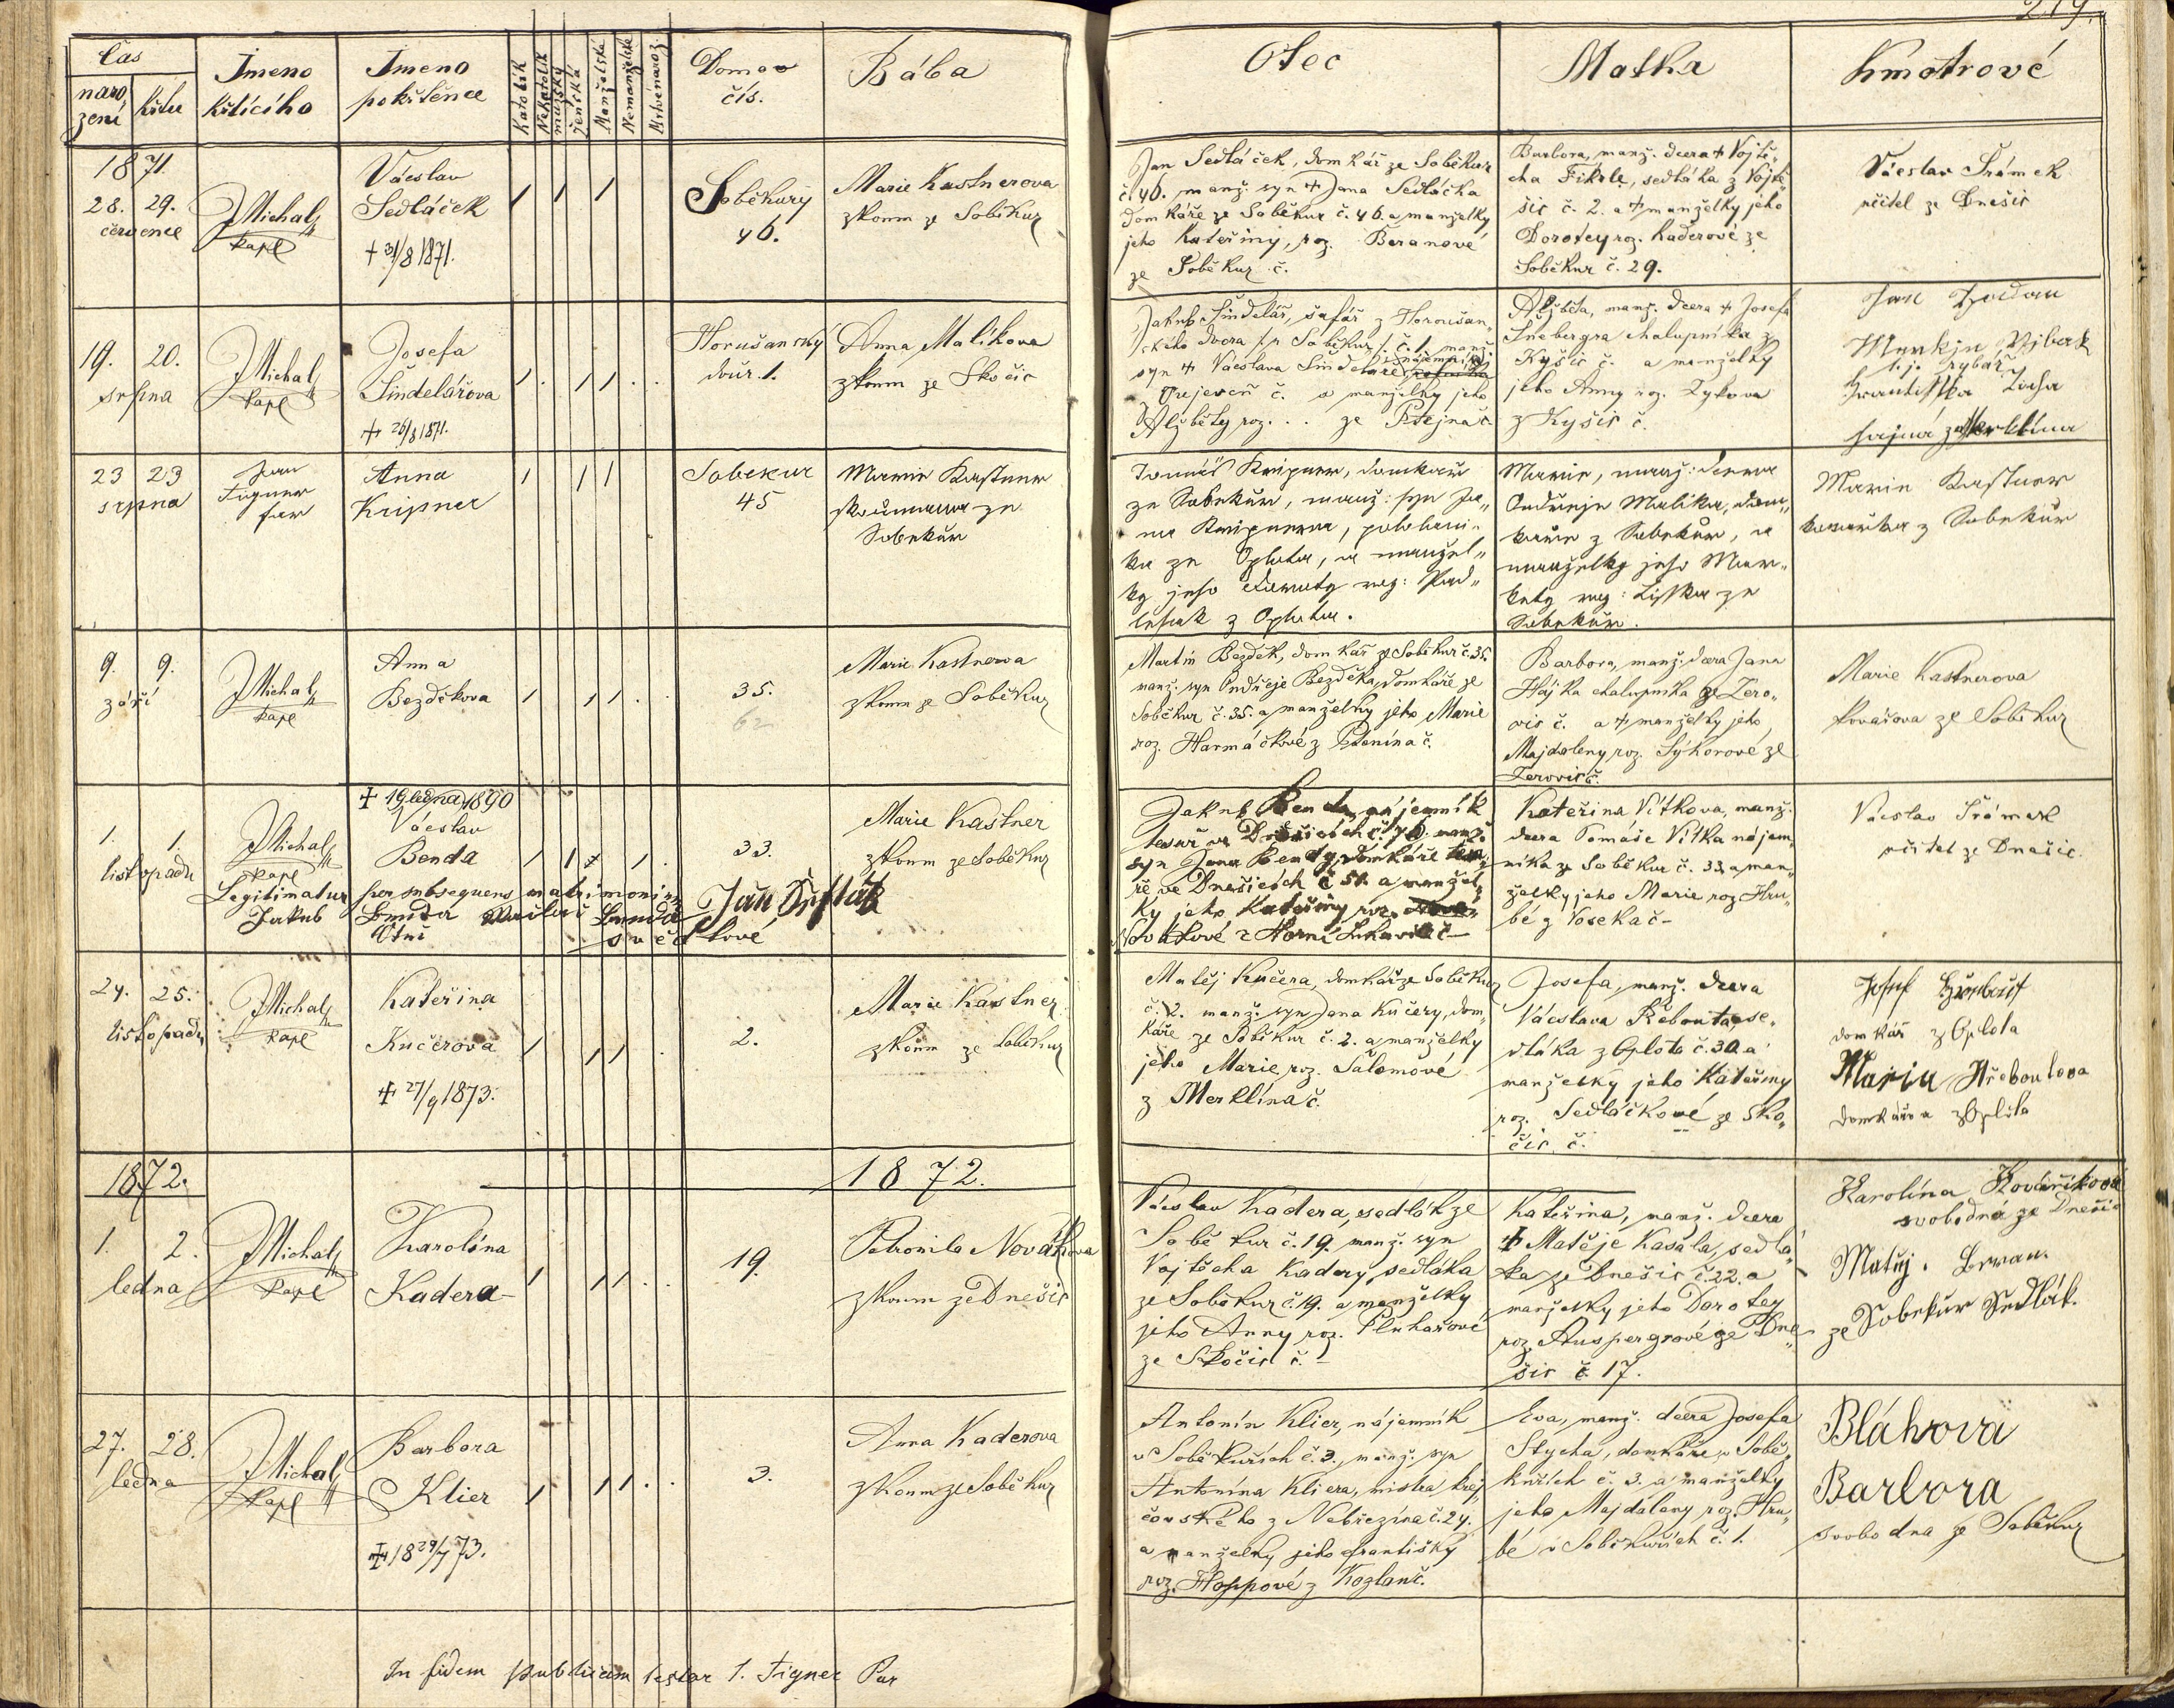 Čas
naro
zení
křtu
Jmeno
křtícího
Jmeno
pokřtěnce
Katolík
Nekatolík
mužský
ženská
Manželské
Nemanželské
Mrtvěnaroz.
Domov
čís.
Bába
Otec
Matka
Kmotrové
1871.
28. 29.
července
J Michal
kapl
Václav
Sedláček
+ 31/8 1871.
Soběkury
46.
Marie Kastnerova
zkoum ze Soběkur
Jan Sedláček, domkář ze Soběkur
č. 46. manž. syn + Jana Sedláčka
domkáře ze Soběkur č. 46. a manželky
jeho Kateřiny, roz. Beranové
ze Soběkur č.
Barbora, manž. dcera + Vojtě„
cha Fikrle, sedláka z Vojtě„
šic č. 2. a + manželky jeho
Dorotey roz. Kaderové ze
Soběkur č. 29.
Václav Šrámek
učitel ze Dnešic
19. 20.
srpna
J Michal
kapl
Josefa
Šindelářova
+ 26/8 1871.
Horušanský
dvůr. 1.
Anna Malikova
zkoum ze Skočic
Jakub Šindelář, šafář z Horoušan„
ského dvora č. 1. manž.
syn + Václava Šindeláře
č. a manželky jeho
Alžběty roz. . . ze Ptejna č.
Alžběta, manž. dcera + Josefa
Šnebergra chalupníka z
Kyšic č. a manželky
jeho Anny roz. Zykova
z Kyšic č.
rybář
23 23
srpna
Jan
Tigner
far
Anna
Kripner
Sobekur
45
Marie Kastner
zkoumana ze
Sobekur
Tomáš Kripner, domkář
ze Sobekur, manž: syn Ja„
na Kripnera,
ka ze Oplota, a manžel„
ky jeho Doroty roz: Pod„
lesak z Oplota.
Marie, manž: dcera
Ondřeje Malika, dom„
káře z Sobekur, a
manželky jeho Mar„
kety roz: Liska ze
Sobekur.
Marie Kastner
kovářka z Sobekur
9. 9.
září
J Michal
kapl
Anna
Bezděkova
35.
62
Marie Kastnerova
zkoum ze Soběkur
Martin Bezděk, domkář ze Soběkur č. 35.
manž. syn Ondřeje Bezděka, domkáře ze
Soběkur č. 35. a manželky jeho Marie
roz. Harmáčkové z Ptenína č.
Barbora, manž. dcera Jana
Hájka chalupníka ze Žero„
vic č. a + manželky jeho
Majdaleny roz. Sýkorové ze
Žerovic č.
Marie Kastnerova
kovářova ze Soběkur
1. 1.
listopadu
J Michal
kapl
+ 19 ledna 1890
Václav
Benda
33.
Marie Kastner
zkoum ze Soběkur
Legitimatur per subsequens matrimonium
Jakub Benda
Otec
svědkové
Jakub Benda, nájemník
tesař ve Dnešicích č. 76. manž.
syn Jana Bendy, domkáře
ře ve Dnešicích č 51. a manžel„
ky jeho Kateřiny roz.
Novákové z Horní Lukavice č –
Kateřina Vítkova, manž.
dcera Tomáše Vítka nájem„
níka ze Soběkur č. 33. a man„
želky jeho Marie roz. Hru„
bé z Voseka č –
Václav Šrámek
učitel ze Dnešic.
24. 25.
listopadu
J Michal
kapl
Kateřina
Kučerova
+ 27/9 1873.
2.
Marie Kastner
zkoum ze Soběkur
Matěj Kučera, domkář ze Soběkur
č. 2. manž. syn Jana Kučery, dom„
káře ze Soběkur č. 2. a manželky
jeho Marie roz. Šalomové
z Merklína č.
Josefa, manž. dcera
Václava Řebouta, se„
dláka z Oplota č. 30. a
manželky jeho Kateřiny
roz. Sedláčkové ze Sko„
čic č.
domkář z Oplota
Marie Hřeboutova
domkářova z Oplota
1872.
1872.
1. 2.
ledna
J Michal
kapl
Karolína
Kadera
19.
Petronila Nováková
zkoum ze Dnešic
Václav Kadera, sedlák ze
Soběkur č. 19. manž. syn
Vojtěcha Kadery, sedláka
ze Soběkur č. 19. a manželky
jeho Anny roz. Pluhařové
ze Skočic č. –
Kateřina, manž. dcera
+ Matěje Kasala, sedlá„
ka ze Dnešic č. 22. a
manželky jeho Dorotey
roz. Auspergrové ze Dne„
šic č. 17.
Karolína Kovaříková
svobodna ze Dnešic
Matěj Beran.
ze Sobekur Sedlák.
27. 28.
ledna
J Michal
kapl
Barbora
Klier
+ 18 29/7 73.
3.
Anna Kaderova
zkoum ze Soběkur
Antonín Klier, nájemník
v Soběkuřích č. 3. manž. syn
Antonína Kliera, mistra krej„
čovského z Nebřezína č. 24.
a manželky jeho Františky
roz. Hoppové z Kozlan č.
Eva, manž. dcera Josefa
Stycha, domkáře v Sobě„
kuřích č. 3. a manželky
jeho Majdaleny roz. Hru„
bé v Soběkuřích č. 1.
Bláhova
Barbora
svobodna ze Soběkur
In fidem publicam testor J. Tigner Par